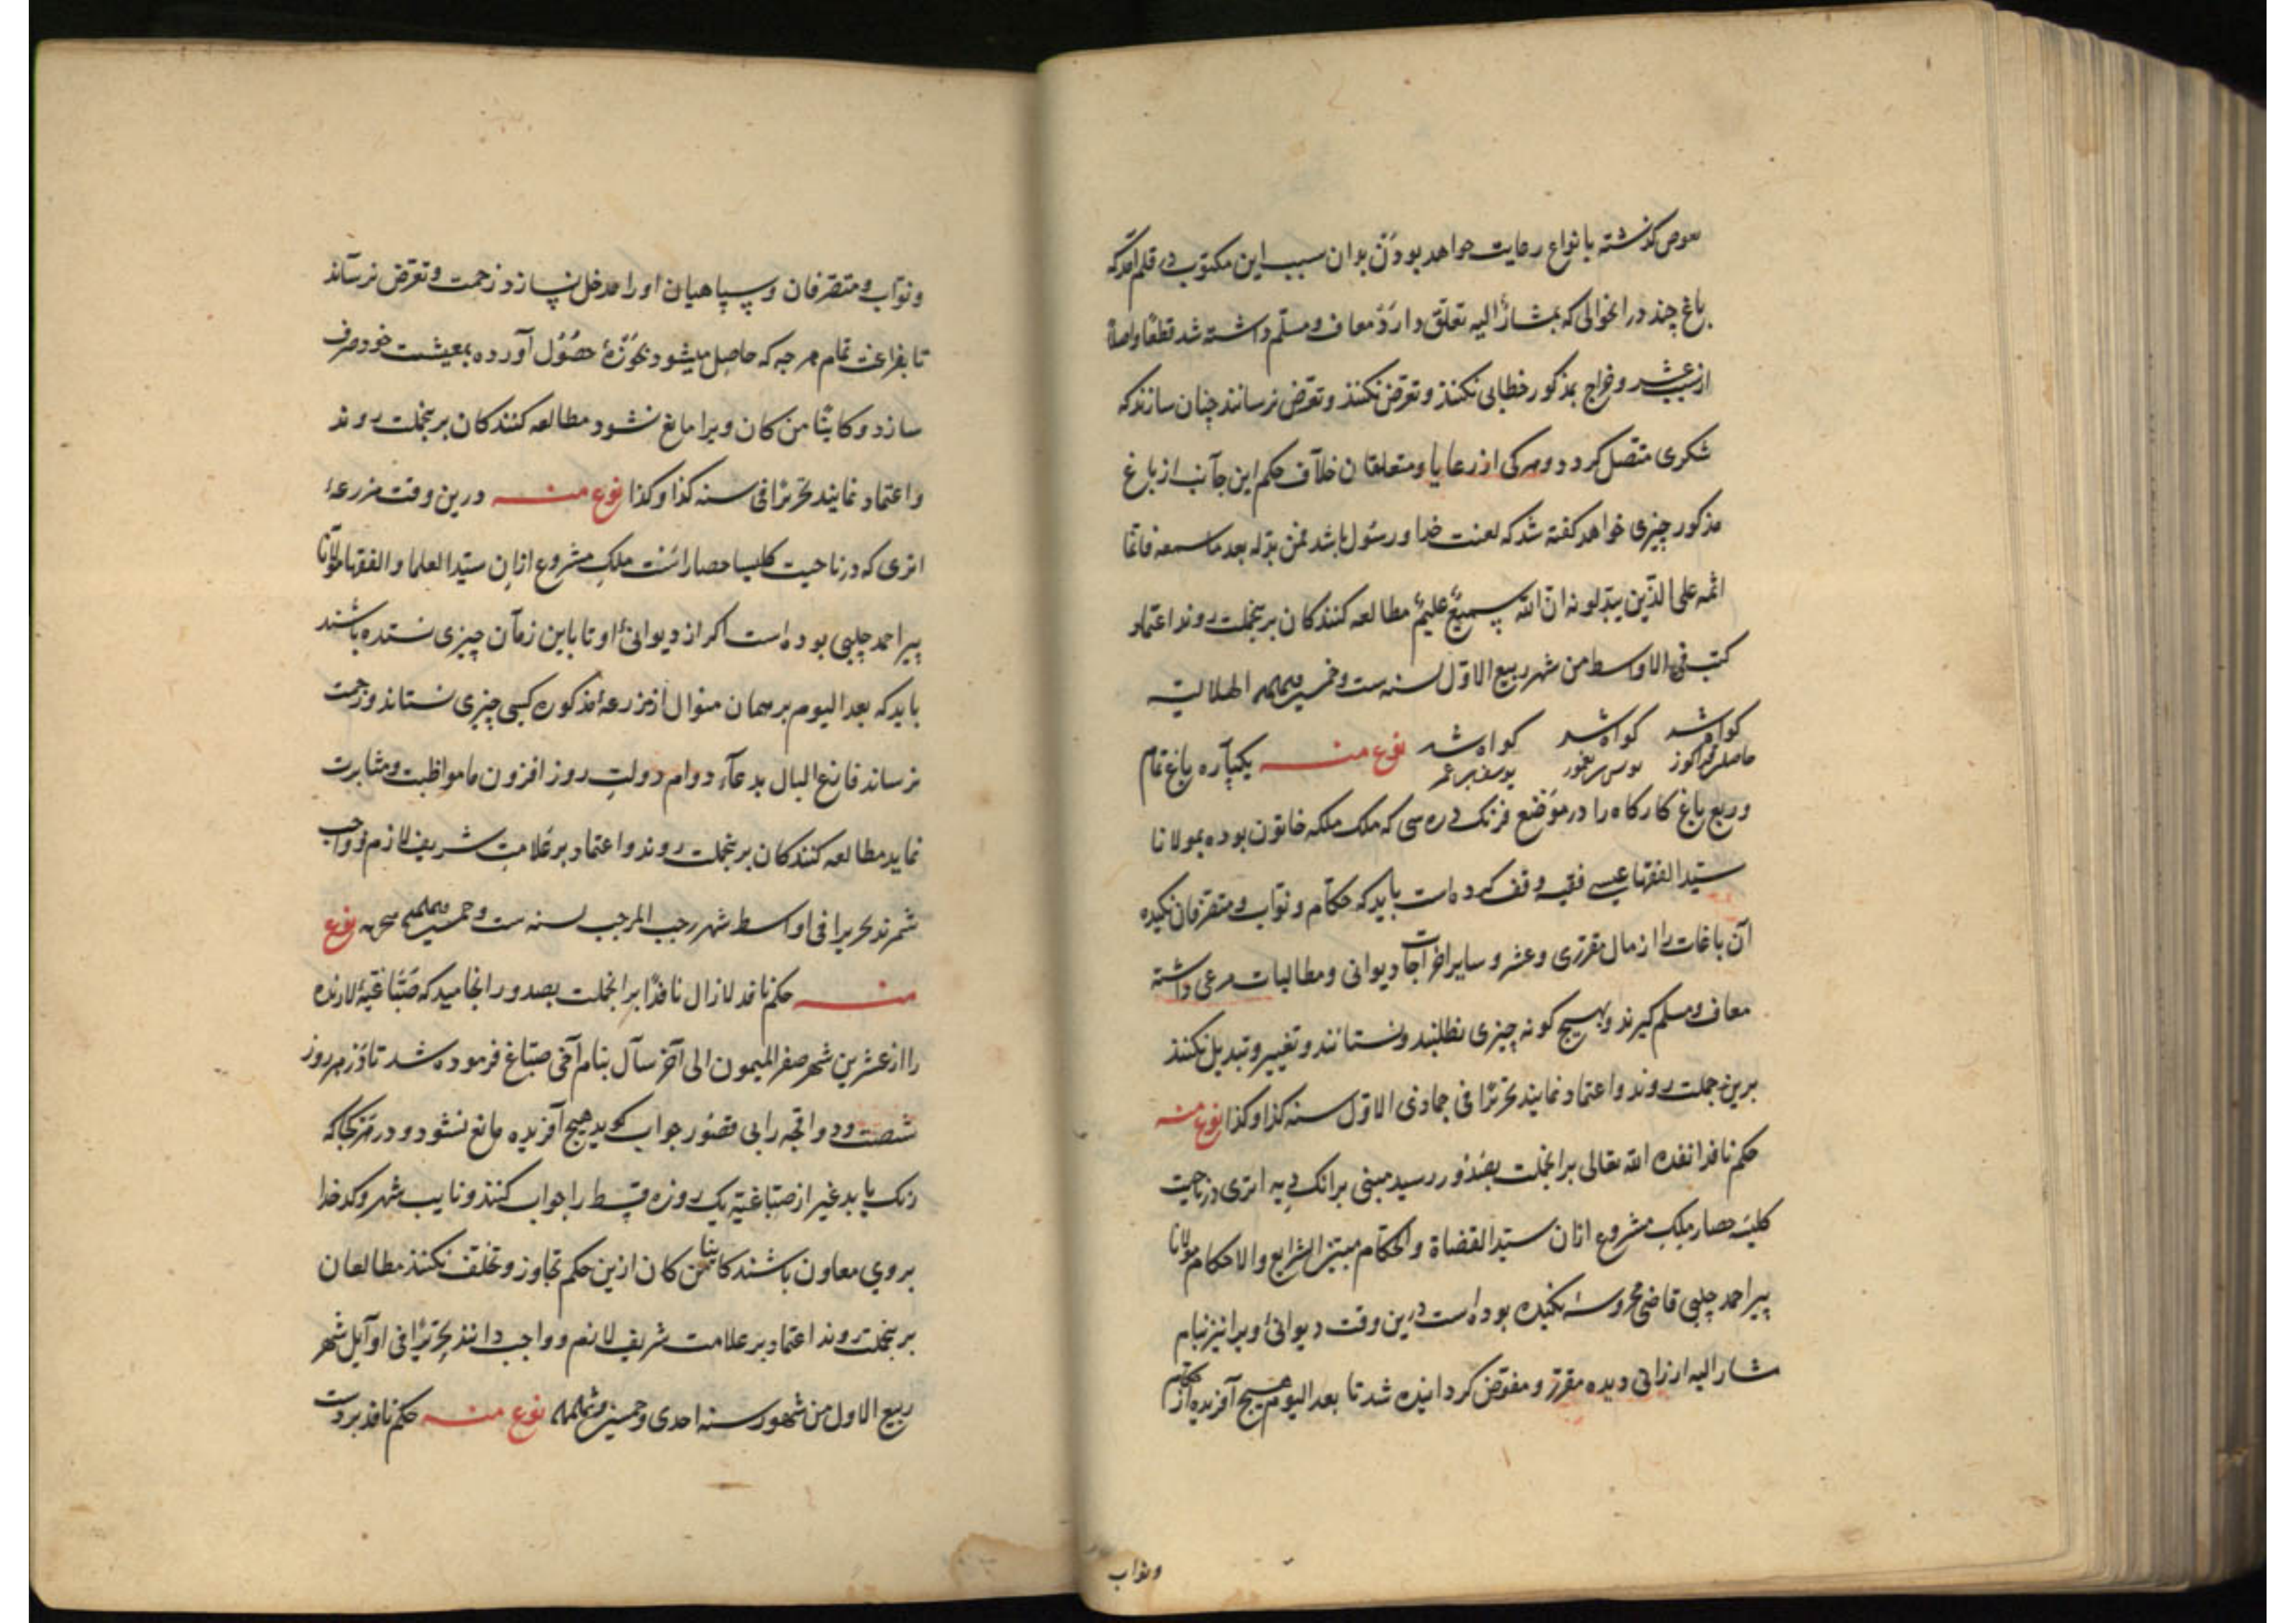 گذشته بانواع رعایت خواهد بودن بدان سبب این مکتوب در قلم آمد که
باغ چند در انحوالی که بمشارٌ الیه تعلق دارد معاف و مسلم داشته شد قطعا و اصلا
از سبب عشر و خراج بمذکور خطابی نکنند و تعرض نکنند و تعرض نرسانند چنان سازند که
شکری متصل کردد و هرکی از رعایا و متعلقان خلاف حکم این جانب از باغ
مذکور چیزی خواهد کفته شد که لعنت خدا و رسول باشد فمن بدّله بعد ما سمعه فانما
اثمه علی الذین یبدلونه ان الله سمیعٌ علیمٌ مطالعه کنندکان برینجملت روند اعتماد
کتب فی الاواسط من شهر ربیع الاول لسنه ست و خمسین الهلالیة
کواه شد کواه شد کواه شد نوع منه یکپاره باغ تمام
یوسف بن عمر
و ربع باغ کارکاه را در موضع فرنک دره سی که ملک ملکه خاتون بوده بمولانا
سید الفقها عیسی فقیه وقف کرده است باید که حکام و نواب و متصرفان نکیده
آن باغات را از مال مقرری و عشر و سایر اخراجات دیوانی و مطالبات مرعی داشته
معاف و مسلم کیرند و بهیچ کونه چیزی نطلبند و نستانند و تغییر و تبدیل نکنند
برین جملت روند و اعتماد نمایند تحریرًا فی جمادی الاول سنه کذا و کذا نوع منه
حکم نافذ انفذه الله تعالی برانجملت بصدور رسید مبنی برانک دیه اتری در ناحیت
کلیسه حصار ملک مشروع ازان سید القضاة و الحکام مبیّن الشرایع والاحکام مولانا
پیر احمد چلبی قاضی محروسهٔ نکیده بوده است درین وقت دیوانیٔ ویرا نیز بنام
مشار الیه ارزانی دیده مقرر و مفوض کردانیده شد تا بعد الیوم هیچ آفریده از حکام
و نواب
و نواب و متصرفان و سپاهیان اورا مدخل نسازد زحمت و تعرض نرساند
تا بفراغت تمام هرچه که حاصل میشود بحَوزهٔ حصُول آورده بمعیشت خود صرف
سازد و کاینًا من کان ویرا مانع نشود مطالعه کنندکان برینجملت روند
و اعتماد نمایند تحریرًا فی سنه کذا و کذا نوع منه درین وقت مزرعهٔ
اتری که در ناحیت کلیسا حصار است ملک مشروع ازان سیّد العلما و الفقها مولانا
پیر احمد چلبی بوده است اکر از دیوانیٔ او تا باین زمان چیزی نستده باشند
باید که بعد الیوم بر همان منوال از مزرعهٔ مذکوره کسی چیزی نستاند و زحمت
نرساند فارغ البال بدعآء دوام دولت روز افزون ما مواظبت و مثابرت
نماید مطالعه کنندکان برینجملت روند و اعتماد بر علامت شریف لازم و واجب
شمرند تحریرا فی اواسط شهر رجب المرجب لسنه ست و خمسین نوع
منه حکم نافذ لازال نافذًا برانجملت بصدور انجامید که صبّاغیّهٔ لارنده
را از عشرین شهر صفر المیمون الی آخر سال بنام اخی صباغ فرموده شد تا در هر روز
شصت و دو اقچه را بی قصُور جواب کوید هیچ آفریده مانع نشود و در هر کجا که
رنک یابد غیر از صباغیّه یک روزه قسط را جواب کنند و نایب شهر و کدخدا
بروی معاون باشند کاینا من کان ازین حکم تجاوز و تخلف نکنند مطالعان
برینجملت روند اعتماد بر علامت شریف لازم و واجب دانند تحریرًا فی اوایل شهر
ربیع الاول من شهور سنه احدی و خمسین نوع منه حکم نافذ بر دست